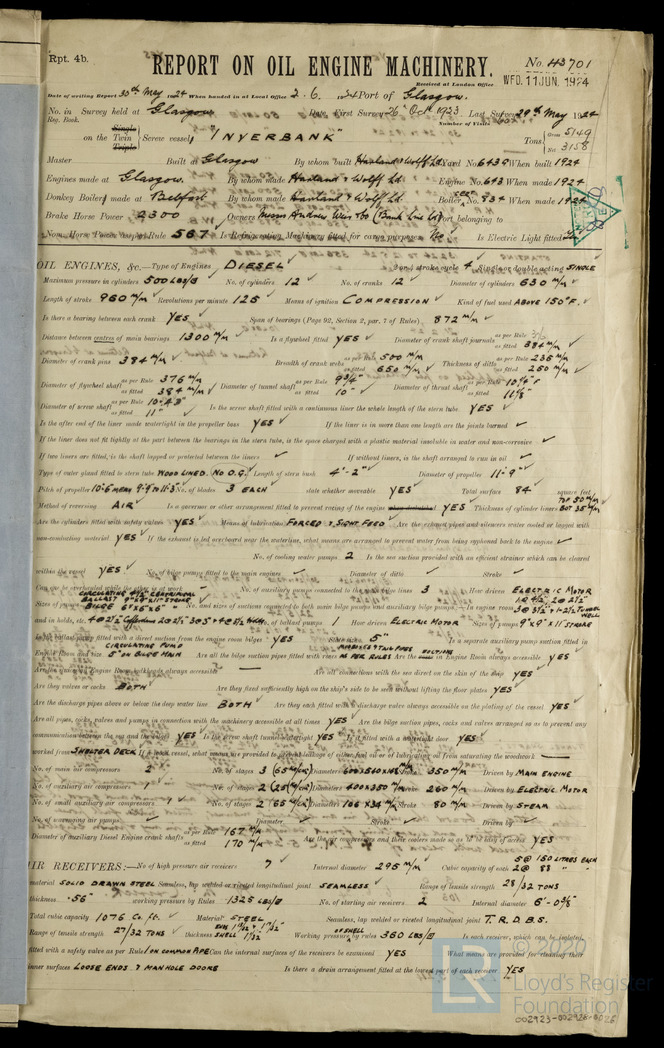 Rpt. 4b.
REPORT ON OIL ENGINE MACHINERY.
No. 43701
Received at London Office WED. 11 JUN. 1924
Date of writing Report 30th May 1924 When handed in at Local Office 2.6. 24 Port of Glasgow.
No. in Survey held at Glasgow Date, First Survey 26 Octr 1923 Last Survey 29th May 1924
Reg. Book. Number of Visits
on the Single Twin Triple Screw vessel "INVERBANK" Tons Gross 5149 Net 3158
Master Built at Glasgow By whom built Harland & Wolff Ld. Yard No 643G When built 1924
Engines made at Glasgow. By whom made Harland & Wolff Ld. Engine No. 643 When made 1924
Donkey Boiler made at Belfast By whom made Harland & Wolff Ld. Boiler No. 834 When made 1924
Brake Horse Power 2300 Owners Messrs Andrew Weir & Co (Bank Line Ld) Port belonging to
Nom. Horse Power as per Rule 567 Is Refrigerating Machinery fitted for cargo purposes No Is Electric Light fitted
OIL ENGINES, &c.—Type of Engines DIESEL 2 or 4 stroke cycle 4 Single or double acting SINGLE
Maximum pressure in cylinders 500 LBS/□ No. of cylinders 12 No. of cranks 12 Diameter of cylinders 630 m/m
Length of stroke 960 m/m Revolutions per minute 125 Means of ignition COMPRESSION Kind of fuel used ABOVE 150°F.
Is there a bearing between each crank YES Span of bearings (Page 92, Section 2, par. 7 of Rules) 872 m/m
Distance between centres of main bearings 1300 m/m Is a flywheel fitted YES Diameter of crank shaft journals as per Rule as fitted 384 m/m
Diameter of crank pins 384 m/m Breadth of crank webs as per Rule 500 m/m as fitted 650 m/m Thickness of ditto as per Rule 236 m/m as fitted 250 m/m
Diameter of flywheel shaft as per Rule 376 m/m as fitted 384 m/m Diameter of tunnel shaft as per Rule 9 3/4" as fitted 10" Diameter of thrust shaft as per Rule as fitted 11 1/8"
Diameter of screw shaft as per Rule 10.43" as fitted 11" Is the screw shaft fitted with a continuous liner the whole length of the stern tube YES
Is the after end of the liner made watertight in the propeller boss YES If the liner is in more than one length are the joints burned
If the liner does not fit tightly at the part between the bearings in the stern tube, is the space charged with a plastic material insoluble in water and non-corrosive
If two liners are fitted, is the shaft lapped or protected between the liners If without liners, is the shaft arranged to run in oil
Type of outer gland fitted to stern tube WOOD LINED. NO O.G. Length of stern bush 4'-2" Diameter of propeller 11'-9"
Pitch of propeller 10'-6" MEAN 9'-9" TO 11'-3" No. of blades 3 EACH state whether moveable YES Total surface 84 square feet
Method of reversing AIR Is a governor or other arrangement fitted to prevent racing of the engine YES Thickness of cylinder liners TOP 50 m/m BOT 35 m/m
Are the cylinders fitted with safety valves YES Means of lubrication FORCED & SIGHT FEED Are the exhaust pipes and silencers water cooled or lagged with
non-conducting material YES If the exhaust is led overboard near the waterline, what means are arranged to prevent water from being syphoned back to the engine
No. of cooling water pumps 2 Is the sea suction provided with an efficient strainer which can be cleared
within the vessel YES No. of bilge pumps fitted to the main engines Diameter of ditto Stroke
Can one be overhauled while the other is at work No. of auxiliary pumps connected to the main bilge lines 3 How driven ELECTRIC MOTOR
Sizes of pumps CIRCULATING 4 1/2" CENTRIFUGAL BALLAST 9"x9"x11" STROKE BILGE 6"x6"x6" No. and sizes of suctions connected to both main bilge pumps and auxiliary bilge pumps:—In engine room
and in holds, etc. No. of ballast pumps 1 How driven ELECTRIC MOTOR Sizes of pumps 9"x9"x11" STROKE
Is the ballast pump fitted with a direct suction from the engine room bilges YES State size 5" Is a separate auxiliary pump suction fitted in
Engine Room and size CIRCULATING PUMP 5" ON BILGE MAIN Are all the bilge suction pipes fitted with roses AS PER RULES Are the in Engine Room always accessible YES
Are the sluices on Engine Room bulkheads always accessible Are all connections with the sea direct on the skin of the ship YES
Are they valves or cocks BOTH Are they fixed sufficiently high on the ship's side to be seen without lifting the floor plates YES
Are the discharge pipes above or below the deep water line BOTH Are they each fitted with a discharge valve always accessible on the plating of the vessel YES
Are all pipes, cocks, valves and pumps in connection with the machinery accessible at all times YES Are the bilge suction pipes, cocks and valves arranged so as to prevent any
communication between the sea and the bilges YES Is the screw shaft tunnel watertight YES Is it fitted with a watertight door YES
worked from SHELTER DECK If a wood vessel, what means are provided to prevent leakage of either fuel oil or of lubricating oil from saturating the woodwork
No. of main air compressors 2 No. of stages 3 Diameters Stroke 350 m/m Driven by MAIN ENGINE
No. of auxiliary air compressors 1 No. of stages 2 Diameters 400x350 m/m Stroke 260 m/m Driven by ELECTRIC MOTOR
No. of small auxiliary air compressors 1 No. of stages 2 Diameters 106x34 m/m Stroke 80 m/m Driven by STEAM
No. of scavenging air pumps Diameter Stroke Driven by
Diameter of auxiliary Diesel Engine crank shafts as per Rule 167 m/m as fitted 170 m/m Are the air compressors and their coolers made so as to be easy of access YES
IR RECEIVERS:—No. of high pressure air receivers 7 Internal diameter 295 m/m Cubic capacity of each 5 @ 150 LITRES EACH 2 @ 88
material SOLID DRAWN STEEL Seamless, lap welded or riveted longitudinal joint SEAMLESS Range of tensile strength 28/32 TONS
thickness .56" working pressure by Rules 1325 LBS/□ No. of starting air receivers 2 Internal diameter 6'-0 3/8"
Total cubic capacity 1076 Cu. ft. Material STEEL Seamless, lap welded or riveted longitudinal joint T.R.D.B.S.
Range of tensile strength 27/32 TONS thickness SHELL 1 7/32 Working pressure by rules OF SHELL 360 LBS/□ Is each receiver, which can be isolated,
fitted with a safety valve as per Rule 1 ON COMMON PIPE Can the internal surfaces of the receivers be examined YES What means are provided for cleaning their
inner surfaces LOOSE ENDS & MANHOLE DOORS Is there a drain arrangement fitted at the lowest part of each receiver YES
© 2020
LR
Lloyd's Register
Foundation
002923-002928-0026